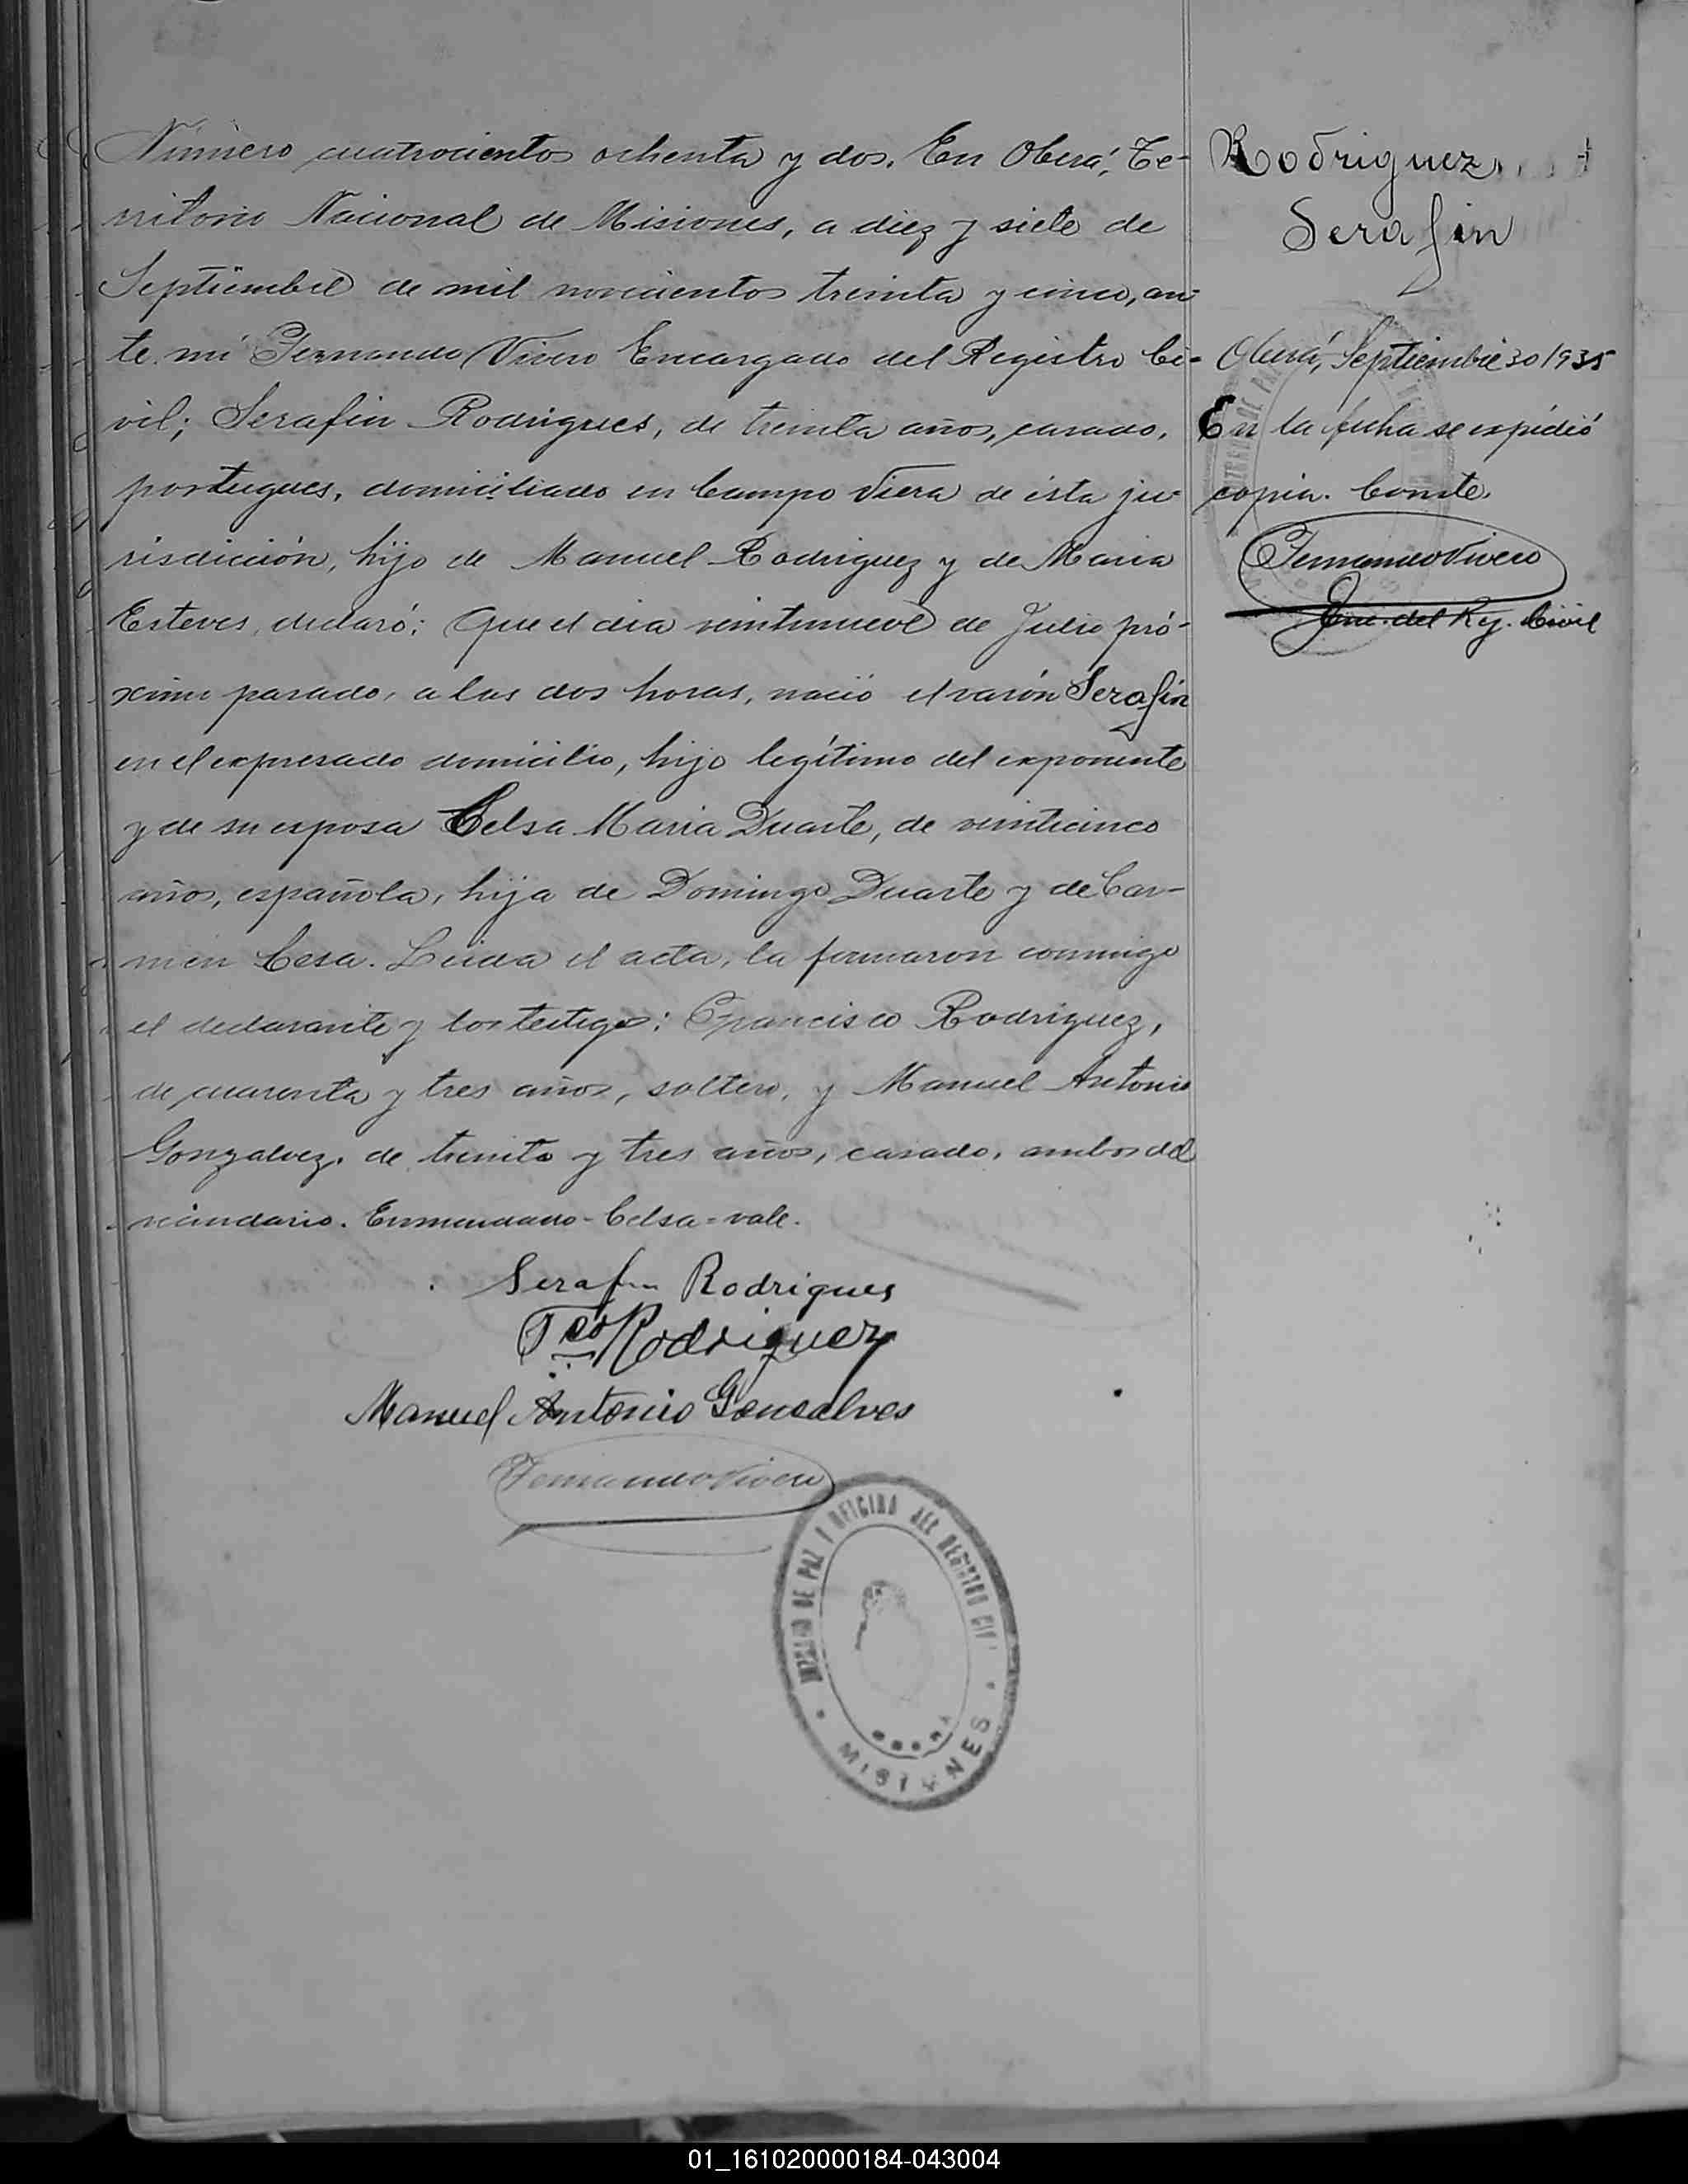 Número cuatrocientos ochenta y dos. En Oberá, Te-
rritorio Nacional de Misiones, a diez y siete de
Septiembre de mil novecientos treinta y cinco, an-
te mi Fernando Vivero Encargado del Registro Ci-
vil; Serafin Rodrigues, de treinta años, casado,
portugues, domiciliado en Campo Viera de ésta ju-
risdicción, hijo de Manuel Rodriguez y de Maria
Esteves, declaró: Que el dia veintinueve de Julio pró-
ximo pasado, a las dos horas, nació el varón Serafin
en el expresado domicilio, hijo legítimo del exponente
y de su esposa Celsa Maria Duarte, de veinticinco
años, española, hija de Domingo Duarte y de Car-
men Cesa. Leida el acta, la firmaron conmigo
el declarante y los testigos: Francisco Rodriguez,
de cuarenta y tres años, soltero, y Manuel Antonio
Gonzalvez, de treinta y tres años, casado, ambos del
vecindario. Enmendado-Celsa=vale.
Serafin Rodrigues
Fco Rodriguez
Manuel Antonio Gonsalves
Fernando Vivero
JUZGADO DE PAZ Y OFICINA DEL REGISTRO CIVIL
OBERÁ
MISIONES
Rodriguez,
Serafin
Oberá, Septiembre 30/935
En la fecha se expidió
copia. Conste.
Fernando Vivero
Enc. del Reg. Civil
01_161020000184-043004